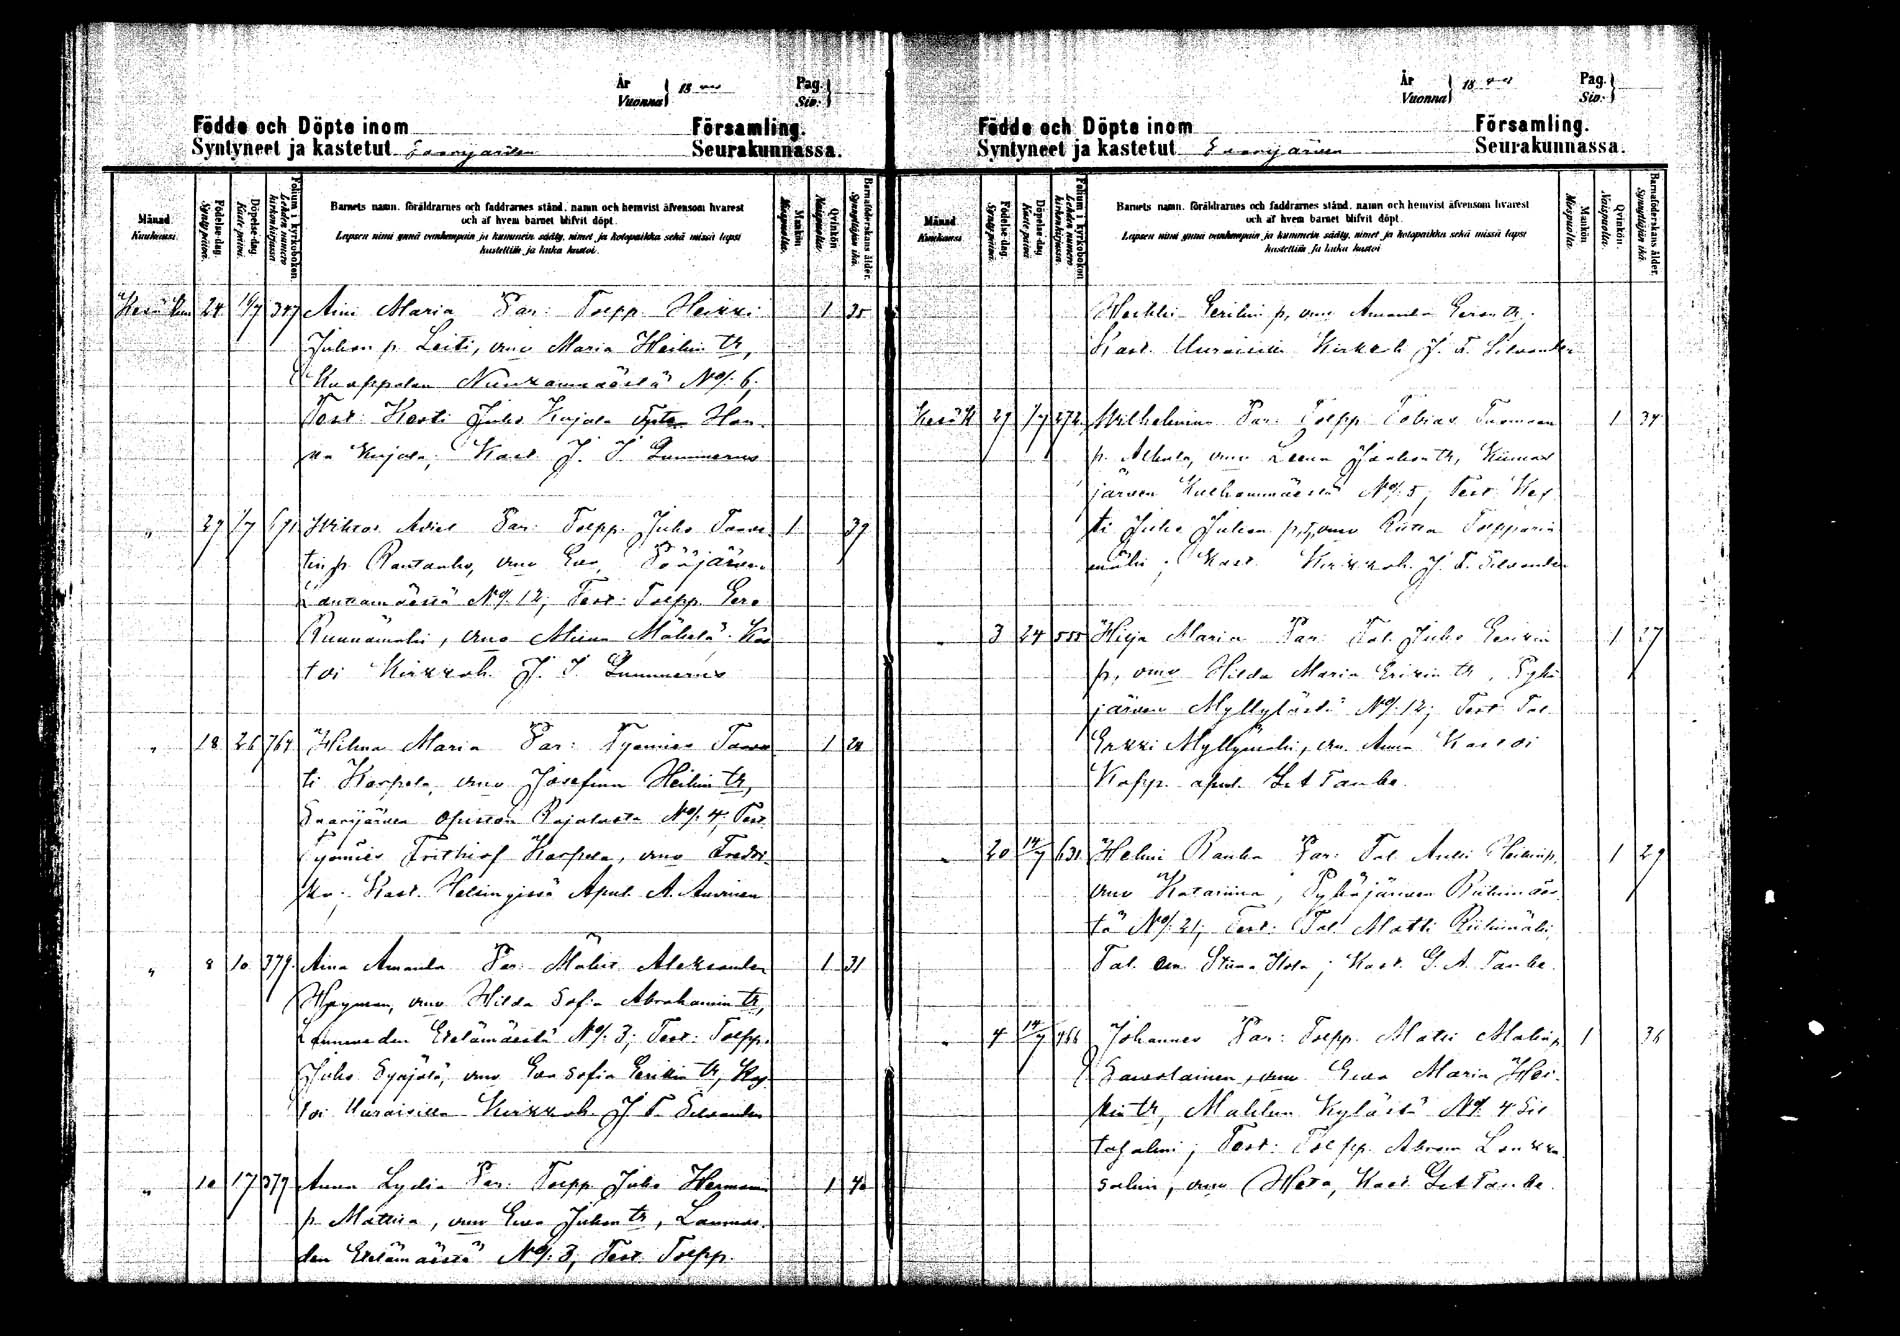 År
Vuonna
18
Pag.
Siv.
Födde och Döpte inom Församling.
Syntyneet ja kastetut Saarijärven Seurakunnassa.
Månad. Kuukausi.
Födelse-dag. Synty-päivä.
Döpelse-dag. Kaste-päivä.
Folium i kyrkoboken. Lehden numero kirkonkirjassa.
Barnets namn, föräldrarnes och faddrarnes stånd, namn och hemvist äfvensom hvarest
och af hvem barnet blifvit döpt.
Lapsen nimi ynnä vanhempain ja kummein sääty, nimet ja kotopaikka sekä missä lapsi
kastettiin ja kuka kastoi.
Mankön. Miespuolia.
Qvinkön. Naispuolia.
Barnaföderskans ålder. Synnyttäjän ikä.
Kesä Kuu 24 10/7 347 Aini Maria Var: Tolpp. Heikki 1 35
Juhon p. Leiti, vmo Maria Heikin tr,
Nº 6;
Test: Kesti Juho Kujala Han-
na Kujala; Kast. J. I. Gummerus
" 29 1/7 671 Wiktor Var: Tolpp. Juho Taave- 1 39
tin p. Rantaaho, vmo Eva, Pääjärven
Nº 12; Test: Tolpp. Eero
vmo Miina Mäkelä; Kas
toi Kirkkoh. J. I. Gummerus
" 18 26 764 Hilma Maria Var: Työmies Taave 1
ti Karpela, vmo Josefina Heikin tr,
Saarijärven Rajalasta Nº 4; Test.
Työmies Frithiof Karpela, vmo Fredri-
ka; Kast. Helsingissä Apul. A. Auvinen
" 8 10 379 Aina Amanda Var: Mäkit. Aleksander 1 31
vmo Hilda Sofia Abrahamin tr,
Lannveden Etelämäestä Nº 3; Test: Tolpp.
Juho Syöjälä, vmo Eva Sofia Eerikin tr, Kas
toi Uuraisilla Kirkkoh. J. F. Silvander
" 10 17 379 Anna Lydia Var: Tolpp. Juho Herman 1 40
p. Mattila, vmo Eva Juhon tr, Lannve-
den Etelämäestä Nº 3, Test. Tolpp.
År
Vuonna
18
Pag.
Siv.
Födde och Döpte inom Församling.
Syntyneet ja kastetut Saarijärven Seurakunnassa.
Månad. Kuukausi.
Födelse-dag. Synty-päivä.
Döpelse-dag. Kaste-päivä.
Folium i kyrkoboken. Lehden numero kirkonkirjassa.
Barnets namn, föräldrarnes och faddrarnes stånd, namn och hemvist äfvensom hvarest
och af hvem barnet blifvit döpt.
Lapsen nimi ynnä vanhempain ja kummein sääty, nimet ja kotopaikka sekä missä lapsi
kastettiin ja kuka kastoi.
Mankön. Miespuolia.
Qvinkön. Naispuolia.
Barnaföderskans ålder. Synnyttäjän ikä.
Heikki Eerikin p, vmo Amanda Eeron tr.
Kast. Uuraisilla Kirkkoh. J. F. Silvander
Kesä K 29 1/7 272 Wilhelmina Var: Tolpp Tobias Tuomaan 1 34
p. Ahola, vmo Leena Jaakon tr, Kiimas
järven Nº 5; Test. Kes
ti Juho Juhon p, vmo Riitta
mäki; Kast. Kirkkoh. J. F. Silvander
" 3 24 555 Hilja Maria Var: Tal. Juho Eerikin 1 27
p, vmo Hilda Maria Erikin tr, Pyhä
järven Myllylästä Nº 12; Test. Tal.
Erkki Myllymäki, vm. Anna Kastoi
Kapp. apul. G. A Taube.
" 20 14/7 631 Helmi Rauha Var: Tal. Antti Heikin p, 1 29
vmo Katariina, Pyhäjärven Riihimäes-
tä Nº 21; Test: Tal. Matti Riihimäki,
Tal. vm. Stiina Hota; Kast. G. A. Taube.
" 4 14/7 466 Johannes Var: Tolpp. Matti Matin p 1 36
Savolainen, vmo Eeva Maria Hei-
kin tr, Mahlun Kylästä Nº 4
Test: Tolpp. Abram
salmi, vmo Heta, Kast. G. A Taube.